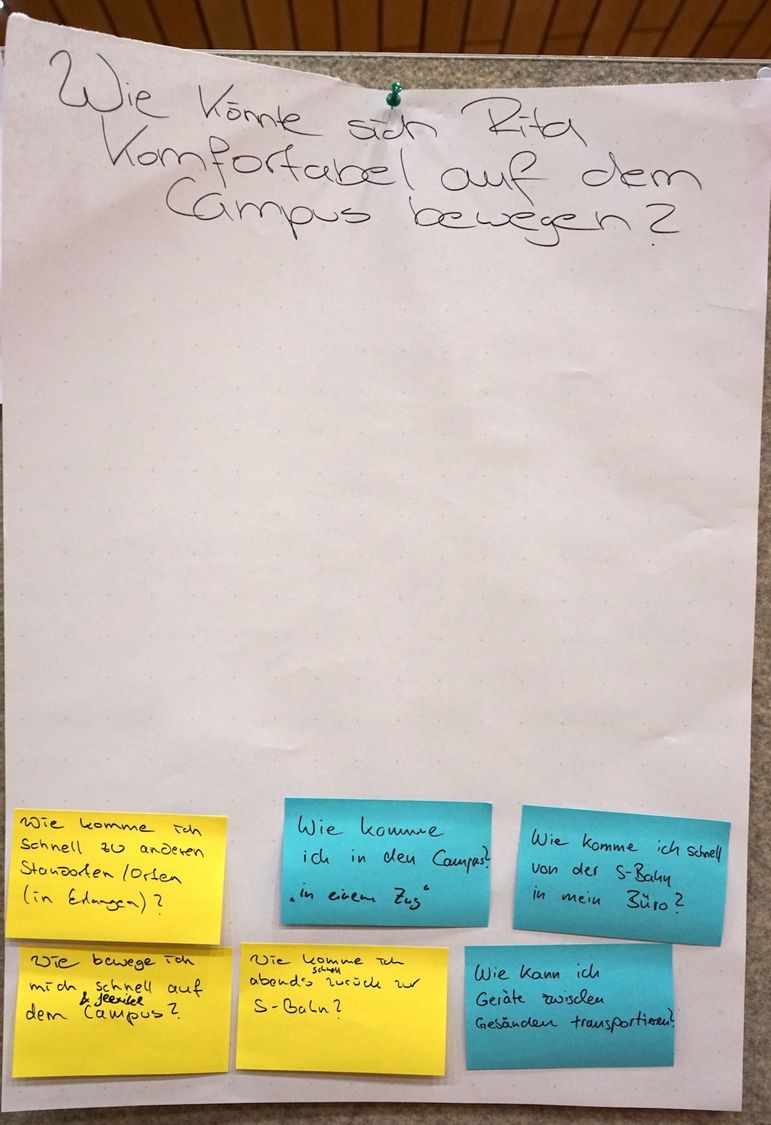 Wie könnte sich Rita
Komfortabel auf dem
Campus bewegen?
Wie komme ich
schnell zu anderen
Standorten/Orten
(in Erlangen)?
Wie komme
ich in den Campus?
"in einem Zug"
Wie komme ich schnell
von der S-Bahn
in mein Büro?
Wie bewege ich
mich schnell auf
&
dem Campus?
Wie komme ich
schnell
abends zurück zur
S-Bahn?
Wie kann ich
Geräte zwischen
transportieren?